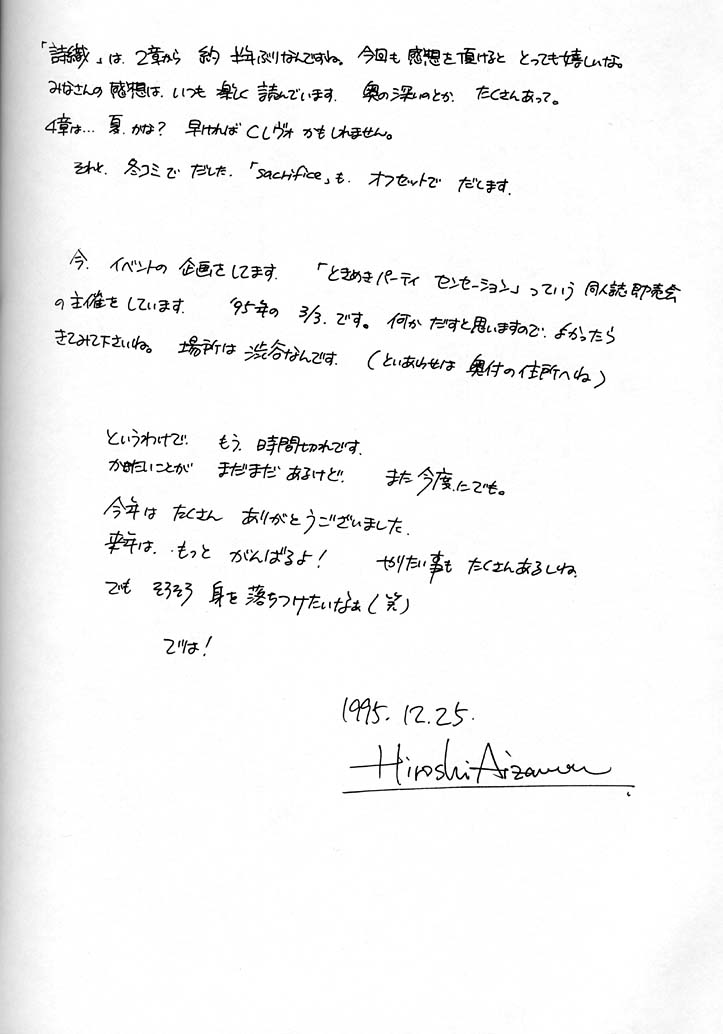 「詩織」は、2章から 約 半年ぶりなんですね。今回も 感想を頂けると とっても嬉しいな。
みなさんの 感想は、いつも 楽しく 読んでいます. 奥の深いのとか、たくさんあって。
4章は… 夏.かな? 早ければ Cレヴォ かもしれません。
それと、冬コミで だした.「sacrifice」も、オフセットで だします.
今. イベントの 企画をしてます. 「ときめきパーティ センセーション」っていう 同人誌即売会
の主催をしています. '95年の 3/3.です。何か だすと思いますので、よかったら
きてみて下さいね。 場所は 渋谷なんです. (といあわせは 奥付の住所へね)
というわけで. もう.時間切れです.
かきたいことが まだまだ あるけど. また今度.にでも。
今年は たくさん ありがとうございました.
来年は.もっと がんばるよ! やりたい事も たくさんあるしね.
でも そろそろ 身を落ちつけたいなぁ(笑)
では!
1995.12.25.
Hiroshi Aizawa